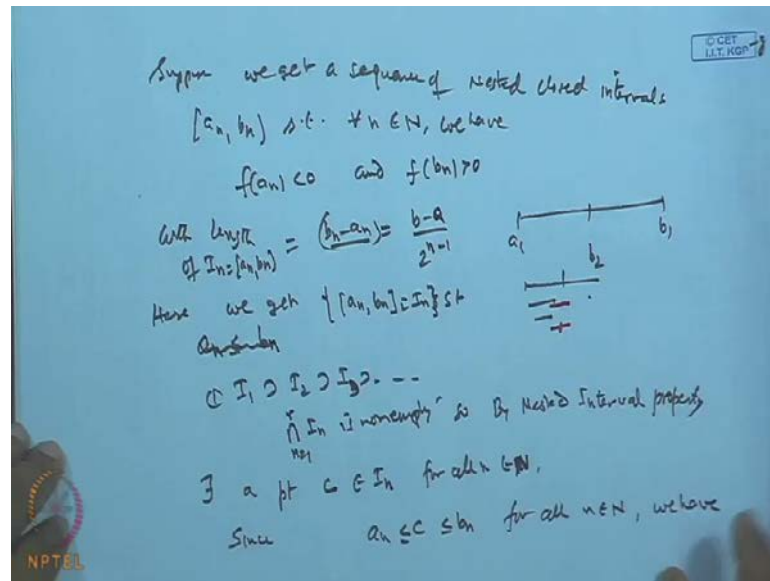 © CET
I.I.T. KGP
Suppose we get a sequence of Nested closed intervals
[an, bn] s.t. ∀ n ∈ N, we have
f(an) <0 and f(bn) >0
with length of In=[an,bn] = (bn-an) = b-a / 2^(n-1)
a1 b1
b2
Here we get {[an, bn] = In} s.t
an ≤ bn
I1 ⊃ I2 ⊃ I3 ⊃ ...
∩ n=1 In is nonempty so By Nested Interval property
∃ a pt c ∈ In for all n ∈ N.
Since an ≤ c ≤ bn for all n ∈ N, we have
NPTEL